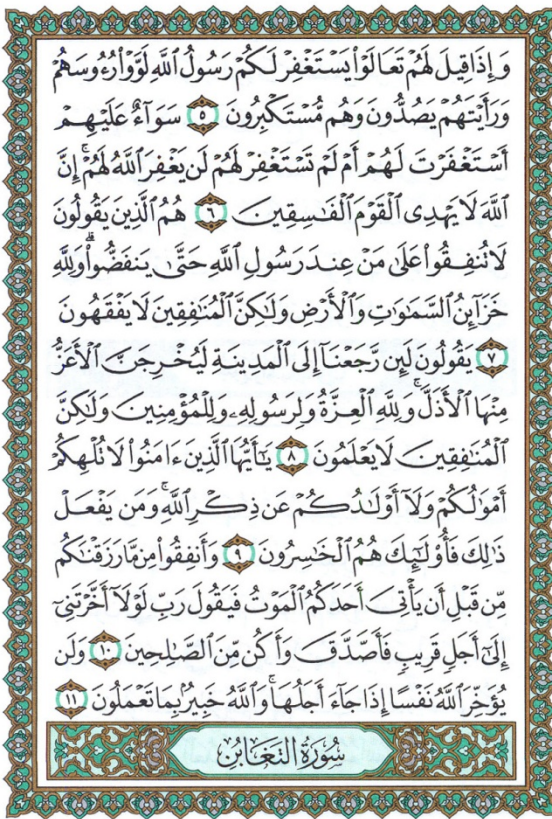 وَإِذَا قِيلَ لَهُمْ تَعَالَوْا۟ يَسْتَغْفِرْ لَكُمْ رَسُولُ ٱللَّهِ لَوَّوْا۟ رُءُوسَهُمْ
وَرَأَيْتَهُمْ يَصُدُّونَ وَهُم مُّسْتَكْبِرُونَ ٥ سَوَآءٌ عَلَيْهِمْ
أَسْتَغْفَرْتَ لَهُمْ أَمْ لَمْ تَسْتَغْفِرْ لَهُمْ لَن يَغْفِرَ ٱللَّهُ لَهُمْ ۚ إِنَّ
ٱللَّهَ لَا يَهْدِى ٱلْقَوْمَ ٱلْفَـٰسِقِينَ ٦ هُمُ ٱلَّذِينَ يَقُولُونَ
لَا تُنفِقُوا۟ عَلَىٰ مَنْ عِندَ رَسُولِ ٱللَّهِ حَتَّىٰ يَنفَضُّوا۟ ۗ وَلِلَّهِ
خَزَآئِنُ ٱلسَّمَـٰوَٰتِ وَٱلْأَرْضِ وَلَـٰكِنَّ ٱلْمُنَـٰفِقِينَ لَا يَفْقَهُونَ
٧ يَقُولُونَ لَئِن رَّجَعْنَآ إِلَى ٱلْمَدِينَةِ لَيُخْرِجَنَّ ٱلْأَعَزُّ
مِنْهَا ٱلْأَذَلَّ ۚ وَلِلَّهِ ٱلْعِزَّةُ وَلِرَسُولِهِۦ وَلِلْمُؤْمِنِينَ وَلَـٰكِنَّ
ٱلْمُنَـٰفِقِينَ لَا يَعْلَمُونَ ٨ يَـٰٓأَيُّهَا ٱلَّذِينَ ءَامَنُوا۟ لَا تُلْهِكُمْ
أَمْوَٰلُكُمْ وَلَآ أَوْلَـٰدُكُمْ عَن ذِكْرِ ٱللَّهِ ۚ وَمَن يَفْعَلْ
ذَٰلِكَ فَأُو۟لَـٰٓئِكَ هُمُ ٱلْخَـٰسِرُونَ ٩ وَأَنفِقُوا۟ مِن مَّا رَزَقْنَـٰكُم
مِّن قَبْلِ أَن يَأْتِىَ أَحَدَكُمُ ٱلْمَوْتُ فَيَقُولَ رَبِّ لَوْلَآ أَخَّرْتَنِىٓ
إِلَىٰٓ أَجَلٍ قَرِيبٍ فَأَصَّدَّقَ وَأَكُن مِّنَ ٱلصَّـٰلِحِينَ ١٠ وَلَن
يُؤَخِّرَ ٱللَّهُ نَفْسًا إِذَا جَآءَ أَجَلُهَا ۚ وَٱللَّهُ خَبِيرٌۢ بِمَا تَعْمَلُونَ ١١
سُورَةُ ٱلتَّغَابُنِ